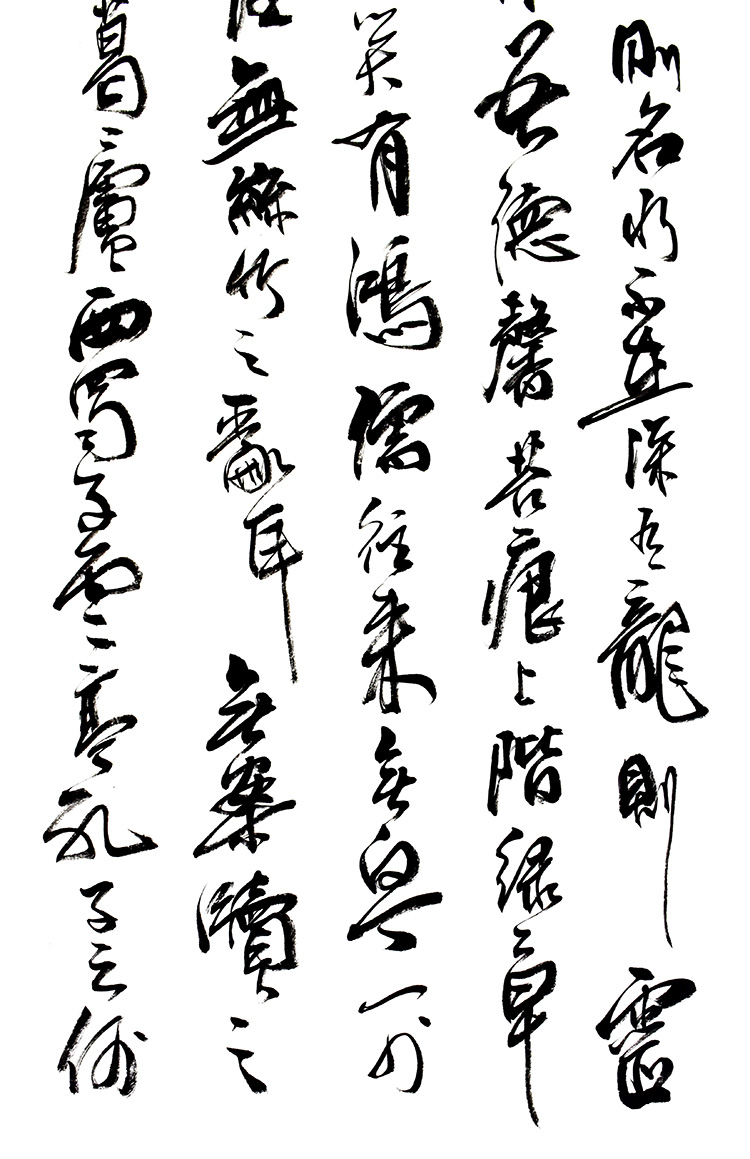 則名水不在深有龍則靈
吾德馨苔痕上階綠草
笑有鴻儒往來無白丁可
無絲竹之亂耳無案牘之
葛廬西蜀子雲亭孔子云何